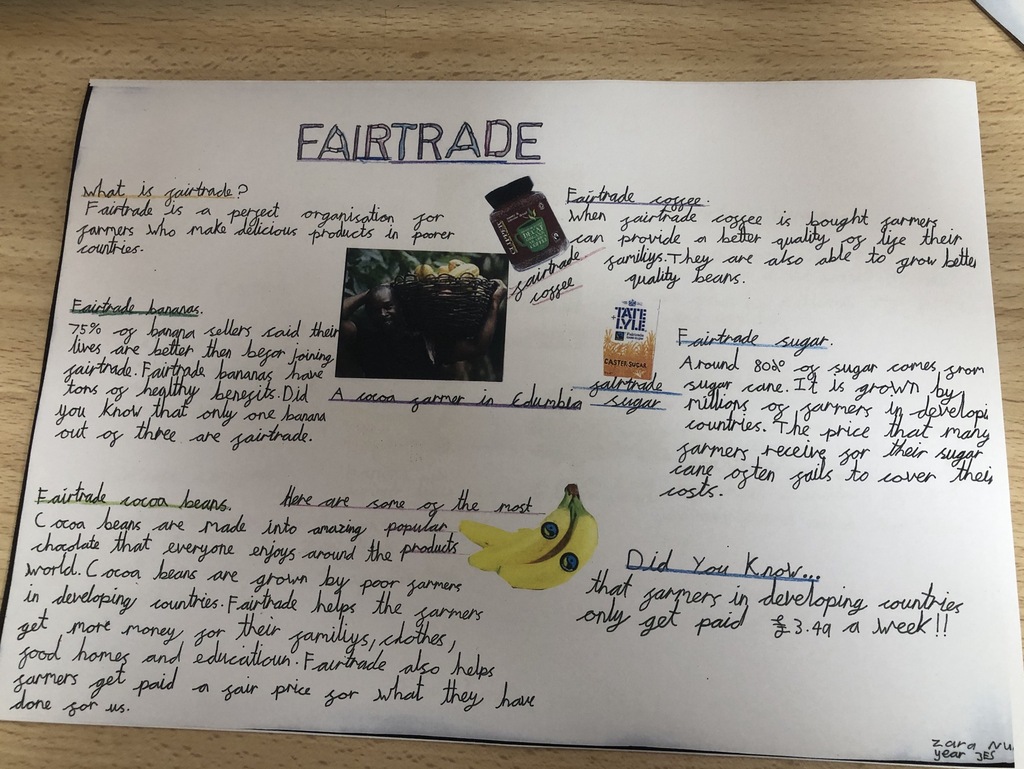 FAIRTRADE
What is fairtrade?
Fairtrade is a perfect organisation for
farmers who make delicious products in poorer
countries.
Fairtrade bananas.
75% of banana sellers said their
lives are better then befor joining
fairtrade. Fairtrade bananas have
tons of healthy benefits. Did
you know that only one banana
out of three are fairtrade.
A cocoa farmer in Edumbia
fairtrade
coffee
Fairtrade coffee.
When fairtrade coffee is bought farmers
can provide a better quality of life their
familiys. They are also able to grow better
quality beans.
TATE
LYLE
CASTER SUGAR
fairtrade
sugar
Fairtrade sugar.
Around 80% of sugar comes from
sugar cane. It is grown by
millions of farmers in developi
countries. The price that many
farmers receive for their sugar
cane often fails to cover their
costs.
Fairtrade cocoa beans.
Cocoa beans are made into amazing
chocolate that everyone enjoys around the
world. Cocoa beans are grown by poor farmers
in developing countries. Fairtrade helps the farmers
get more money for their familiys, clothes,
food homes and educatioun. Fairtrade also helps
farmers get paid a fair price for what they have
done for us.
Here are some of the most
popular
products
Did You Know...
that farmers in developing countries
only get paid £3.49 a week!!
zara Nu
year